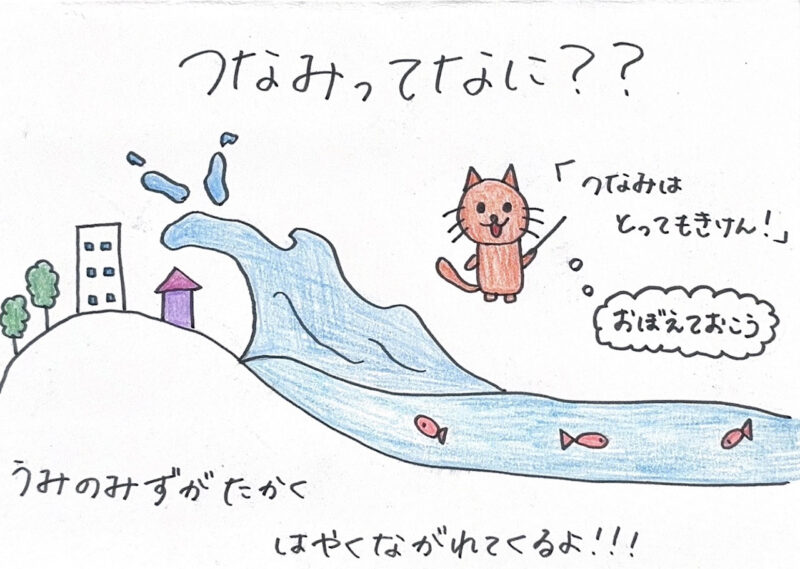 つなみってなに？？
「つなみは
とってもきけん！」
おぼえておこう
うみのみずがたかく
はやくながれてくるよ！！！